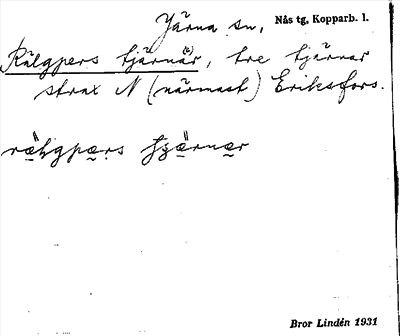 Järna sn, Nås tg, Kopparb. l.
Rälgpers tjärnär(e), tre tjärnar
strax N (närmast) Eriksfors.
Bror Lindén 1931